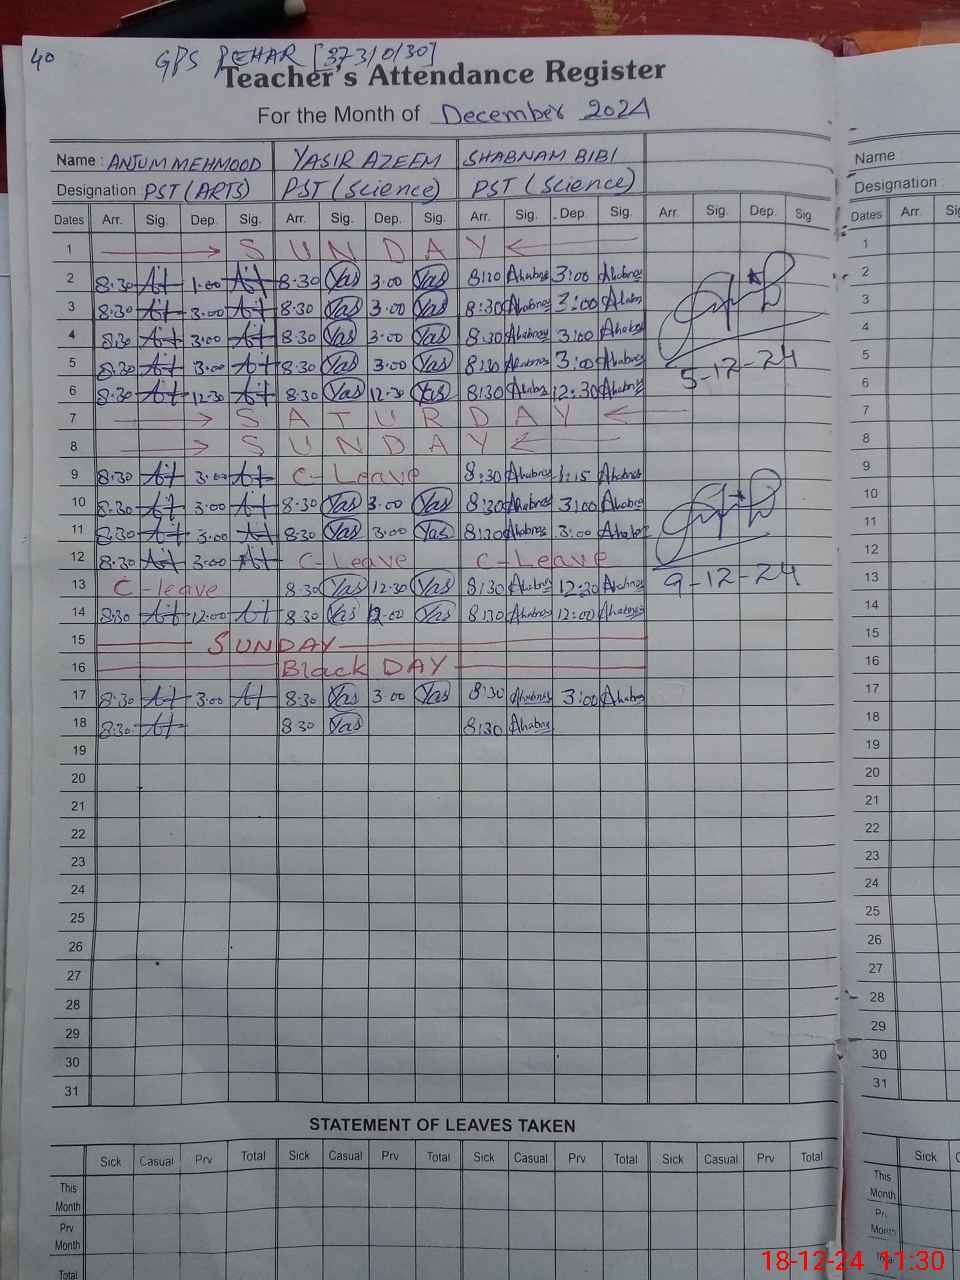 40
GPS PEHAR [373/0/30]
Teacher's Attendance Register
For the Month of December 2024
Name : ANJUM MEHMOOD YASIR AZEEM SHABNAM BIBI
Designation : PST (ARTS) PST (Science) PST (Science)
Dates Arr. Sig. Dep. Sig. Arr. Sig. Dep. Sig. Arr. Sig. Dep. Sig. Arr. Sig. Dep. Sig
1 SUNDAY
2 8:30 1.00 8.30 Yas 3.00 Yas 8:30 3:00
3 8:30 3.00 8.30 Yas 3.00 Yas 8:30 3:00
4 8:30 3.00 8.30 Yas 3.00 Yas 8:30 3:00
5 8:30 3.00 8.30 Yas 3.00 Yas 8:30 3:00
5-12-24
6 8:30 12.30 8.30 Yas 12.30 Yas 8:30 12:30
7 SATURDAY
8 SUNDAY
9 8:30 3.00 C-Leave 8:30 1:15
10 8:30 3.00 8.30 Yas 3.00 Yas 8:30 3:00
11 8:30 3.00 8.30 Yas 3.00 Yas 8:30 3:00
12 8:30 3.00 C-Leave C-Leave
9-12-24
13 C-leave 8.30 Yas 12.30 Yas 8:30 12:30
14 8:30 12.00 8.30 Yas 12.00 Yas 8:30 12:00
15 SUNDAY
16 Black DAY
17 8:30 3.00 8.30 Yas 3.00 Yas 8:30 3:00
18 8:30 8.30 Yas 8:30
19
20
21
22
23
24
25
26
27
28
29
30
31
STATEMENT OF LEAVES TAKEN
Sick Casual Prv Total Sick Casual Prv Total Sick Casual Prv Total Sick Casual Prv Total
This
Month
Prv
Month
Total
Name :
Designation :
Dates Arr.
1
2
3
4
5
6
7
8
9
10
11
12
13
14
15
16
17
18
19
20
21
22
23
24
25
26
27
28
29
30
31
Sick
This
Month
Prv
Month
Total
18-12-24 11:30